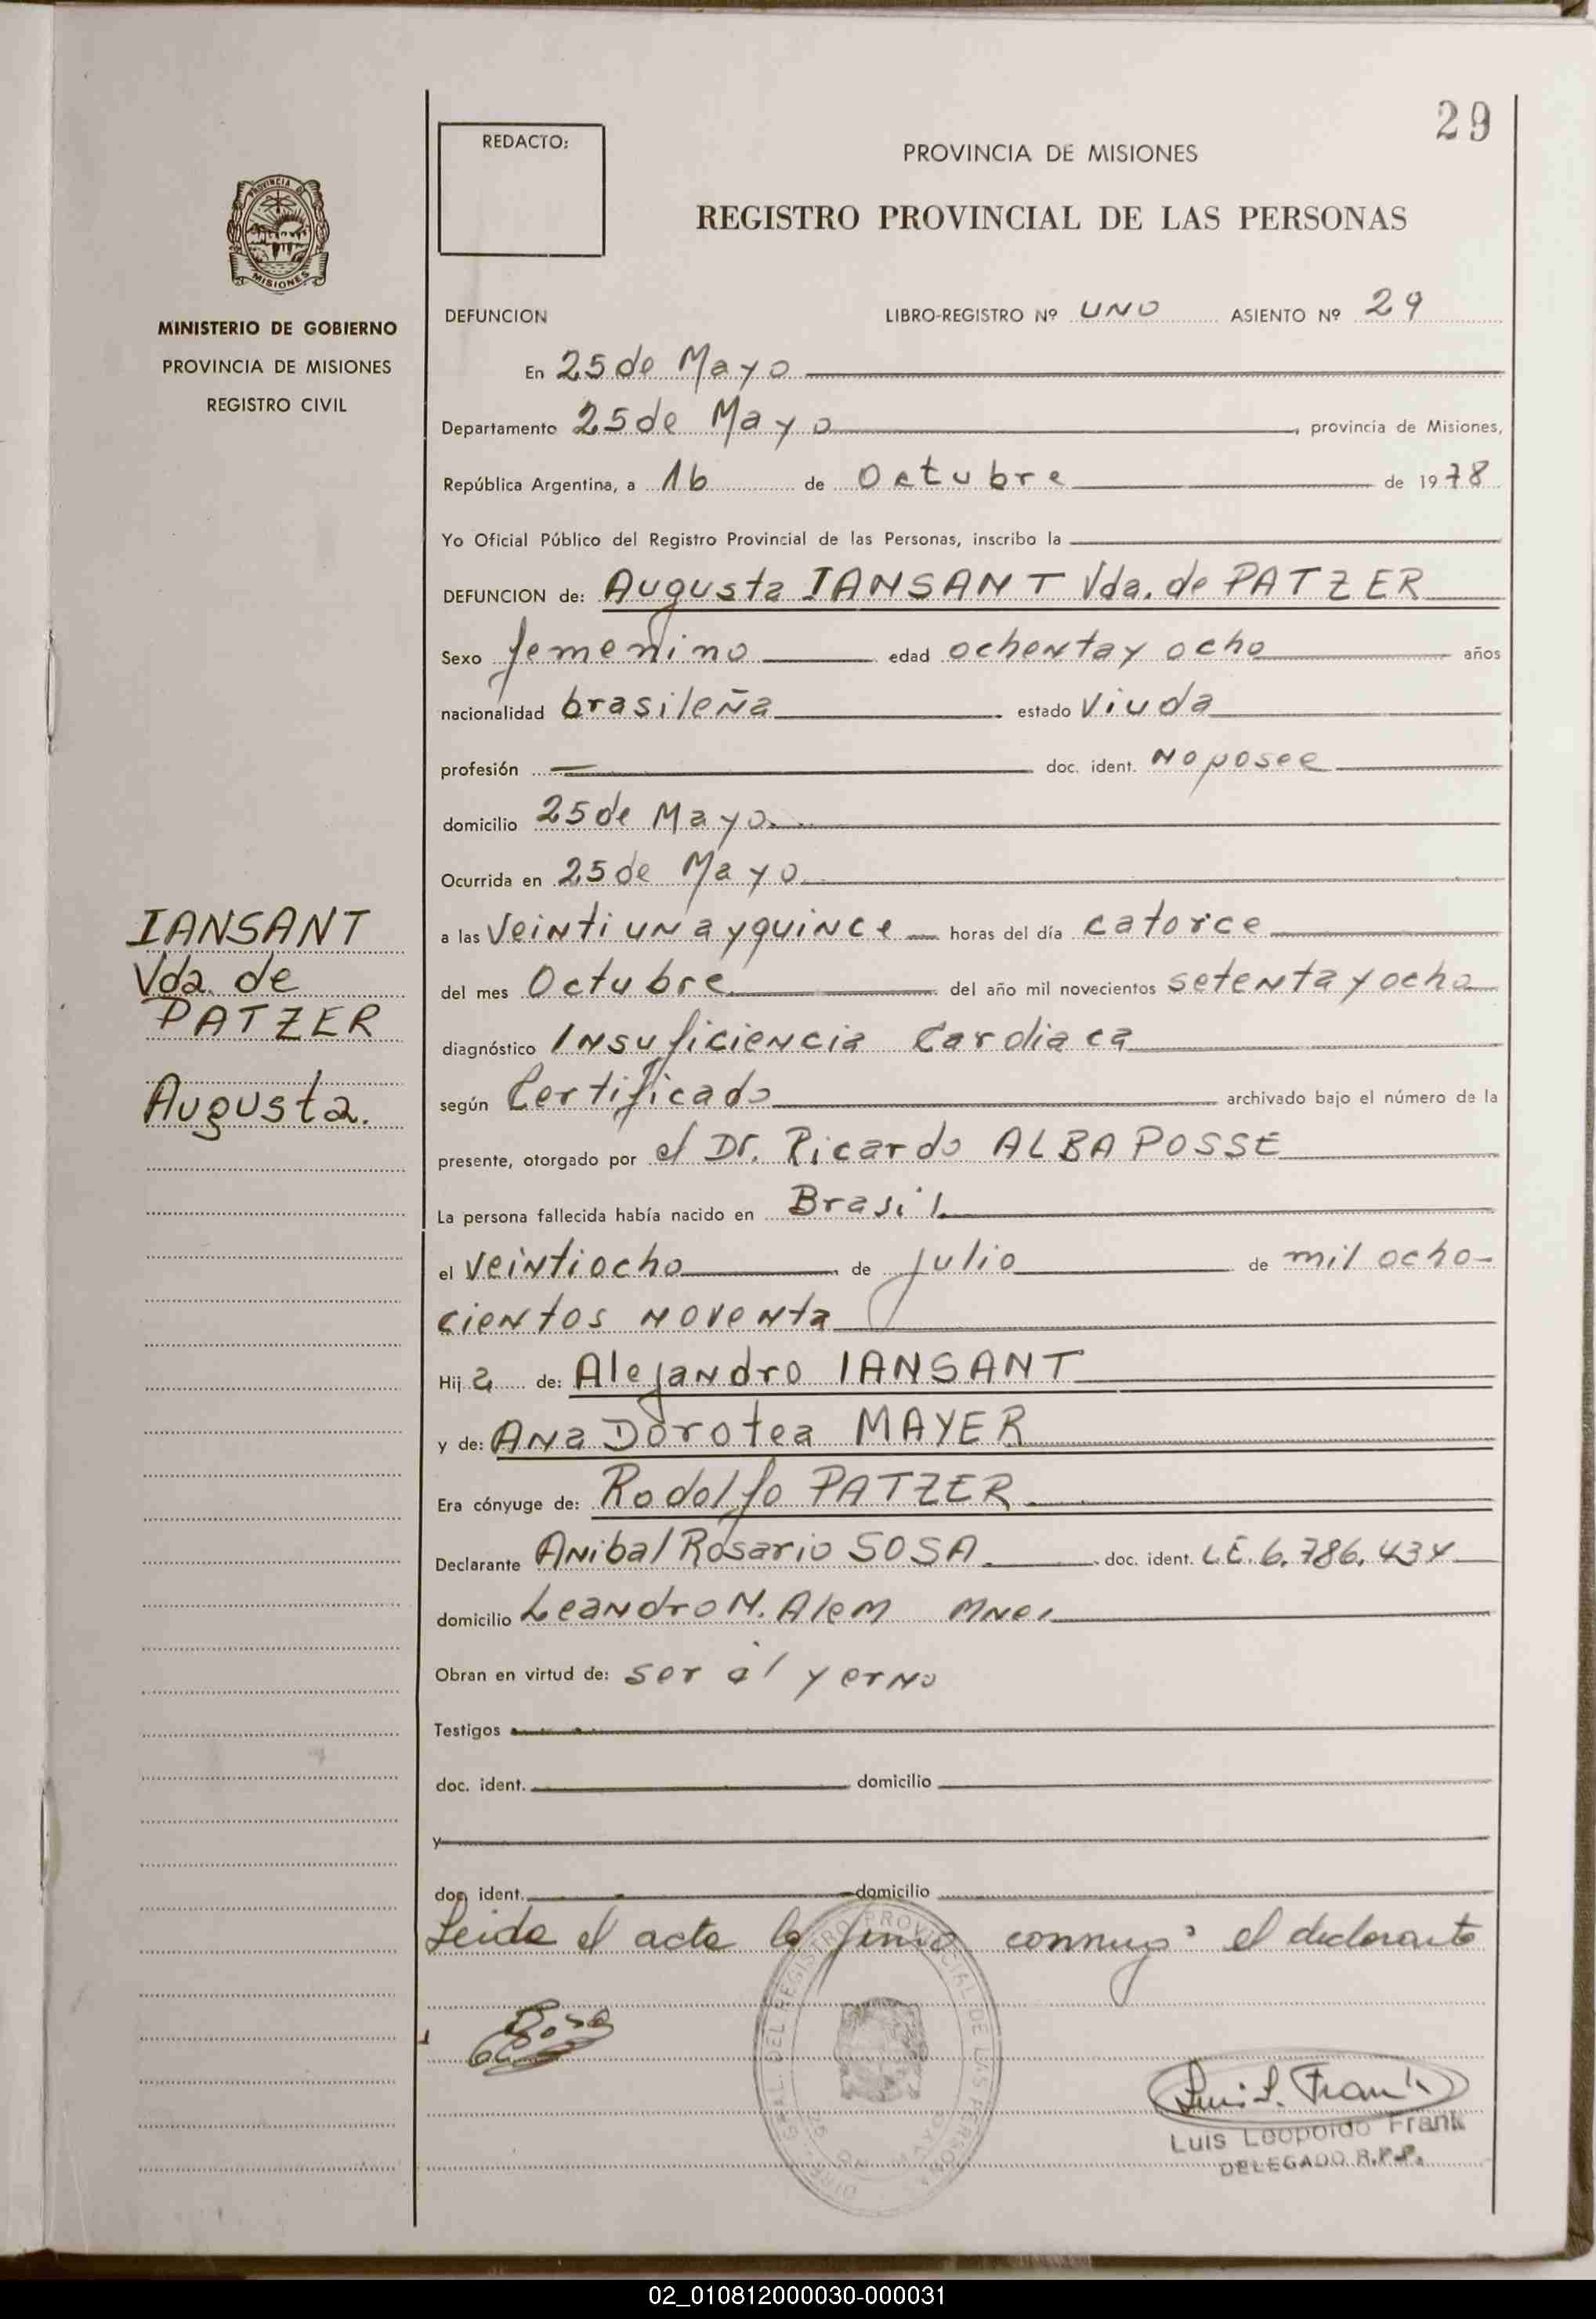 29
REDACTO:
PROVINCIA DE MISIONES
REGISTRO PROVINCIAL DE LAS PERSONAS
PROVINCIA DE
MISIONES
MINISTERIO DE GOBIERNO
PROVINCIA DE MISIONES
REGISTRO CIVIL
DEFUNCION LIBRO-REGISTRO Nº UNO ASIENTO Nº 29
En 25 de Mayo
Departamento 25 de Mayo, provincia de Misiones,
República Argentina, a 16 de Octubre de 1978
Yo Oficial Público del Registro Provincial de las Personas, inscribo la
DEFUNCION de: Augusta IANSANT Vda. de PATZER
Sexo femenino edad ochenta y ocho años
nacionalidad brasileña estado Viuda
profesión — doc. ident. No posee
domicilio 25 de Mayo.
Ocurrida en 25 de Mayo
a las Veintiuna y quince horas del día catorce
del mes Octubre del año mil novecientos setenta y ocho
diagnóstico Insuficiencia Cardiaca
según Certificado archivado bajo el número de la
presente, otorgado por el Dr. Ricardo ALBA POSSE
La persona fallecida había nacido en Brasil
el Veintiocho de julio de mil ocho-
cientos noventa
Hij a de: Alejandro IANSANT
y de: Ana Dorotea MAYER
Era cónyuge de: Rodolfo PATZER
Declarante Anibal Rosario SOSA doc. ident. L.E. 6.786.434
domicilio Leandro N. Alem Mnes
Obran en virtud de: ser el yerno
Testigos
doc. ident. domicilio
y
doc. ident. domicilio
Leida el acta la firma conmigo el declarante
IANSANT
Vda. de
PATZER
Augusta.
Sosa
DIREC. GRAL. DEL REGISTRO PROVINCIAL DE LAS PERSONAS
Luis L. Frank
Luis Leopoldo Frank
DELEGADO R.P.P.
02_010812000030-000031